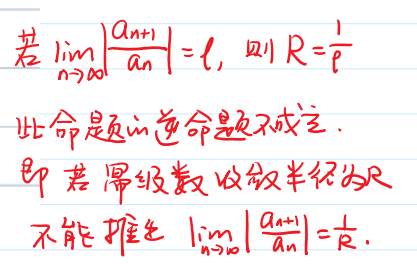 若 lim n→∞ |aₙ₊₁/aₙ| = l, 则 R = 1/l
此命题的逆命题不成立.
即 若 幂级数 收敛半径为R
不能推出 lim n→∞ |aₙ₊₁/aₙ| = 1/R.